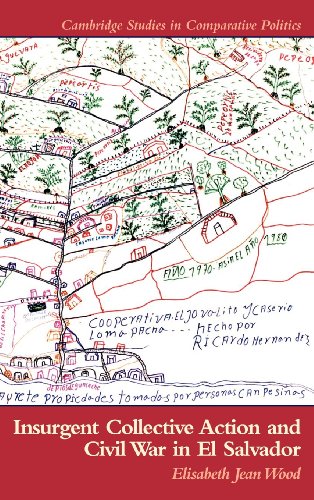 Cambridge Studies in Comparative Politics
EN 1970-ASI EL AÑO 1980
COOPERATIVA EL JOVALITO Y CASERIO
LOMA PACHA.... HECHO POR
RICARDO HERNANDEZ
PROPIEDADES TOMADOS POR PERSONAS CAMPESINAS
Insurgent Collective Action and
Civil War in El Salvador
Elisabeth Jean Wood